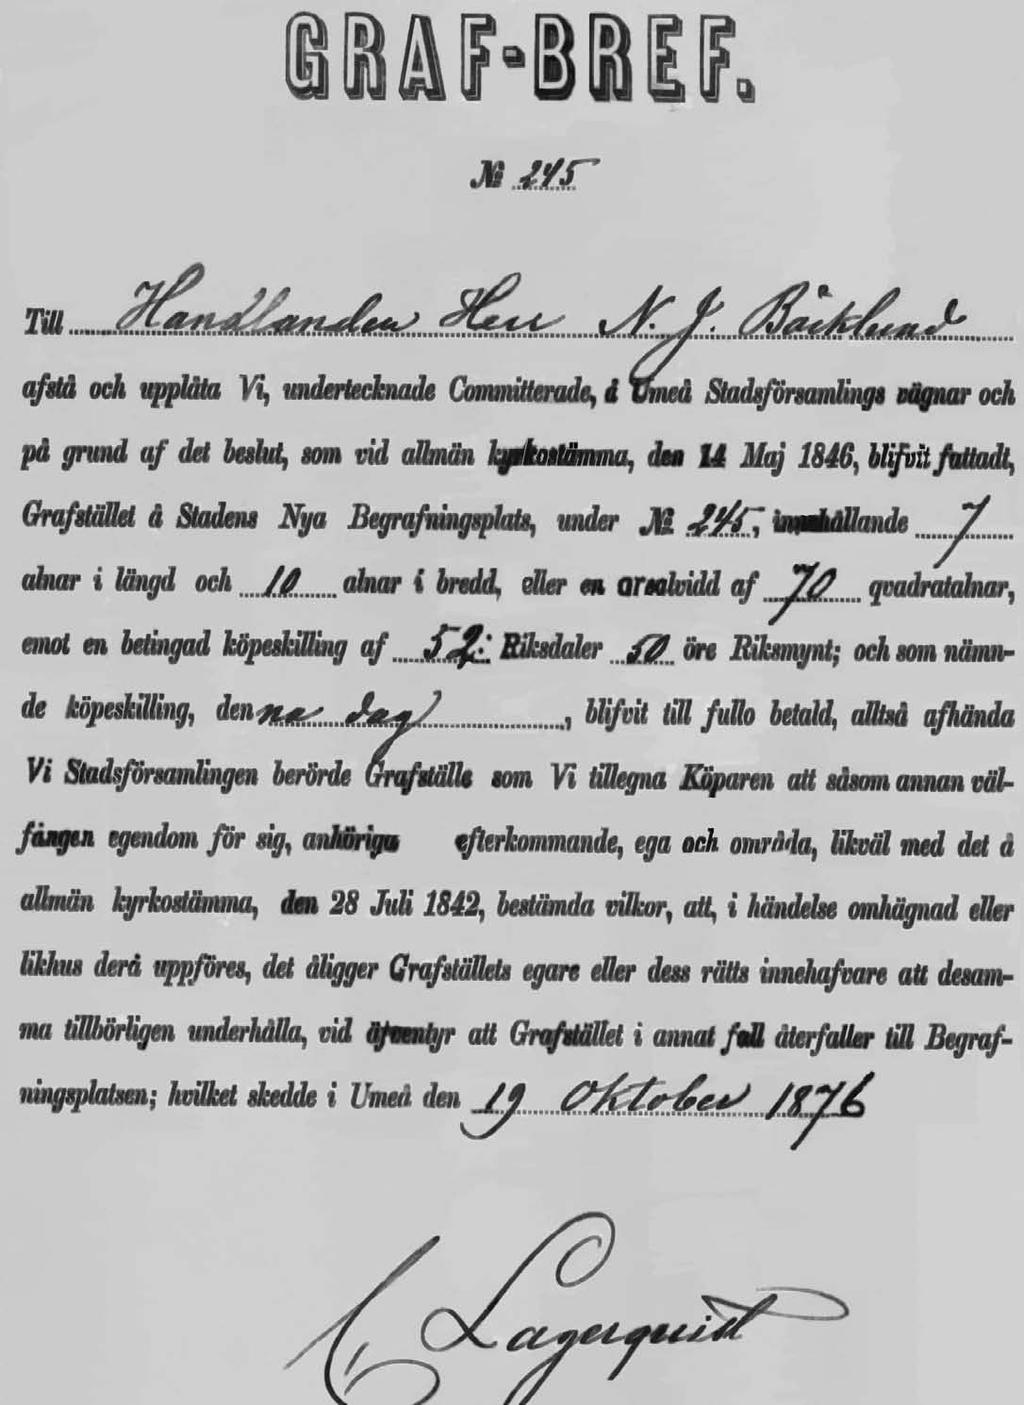 GRAF-BREF.
№ 245
Till Handlanden Herr N. J. Bäcklund
afstå och upplåta Vi, undertecknade Committerade, å Umeå Stadsförsamlings vägnar och
på grund af det beslut, som vid allmän kyrkostämma, den 14 Maj 1846, blifvit fattadt,
Grafstället å Stadens Nya Begrafningsplats, under № 245, innehållande 7
alnar i längd och 10 alnar i bredd, eller en arealvidd af 70 qvadratalnar,
emot en betingad köpeskilling af 52: Riksdaler 50 öre Riksmynt; och som nämn-
de köpeskilling, denna dag, blifvit till fullo betald, alltså afhända
Vi Stadsförsamlingen berörde Grafställe som Vi tillegna Köparen att såsom annan väl-
fången egendom för sig, anhöriga efterkommande, ega och området, likväl med det å
allmän kyrkostämma, den 28 Juli 1842, bestämda vilkor, att, i händelse omhägnad eller
likhus derå uppföres, det åligger Grafställets egare eller dess rätts innehafvare att desam-
ma tillbörligen underhålla, vid äfventyr att Grafstället i annat fall återfaller till Begraf-
ningsplatsen; hvilket skedde i Umeå den 19 Oktober 1876
C Lagerquist